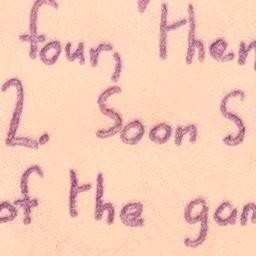 four, then
2. Soon S
of the gam